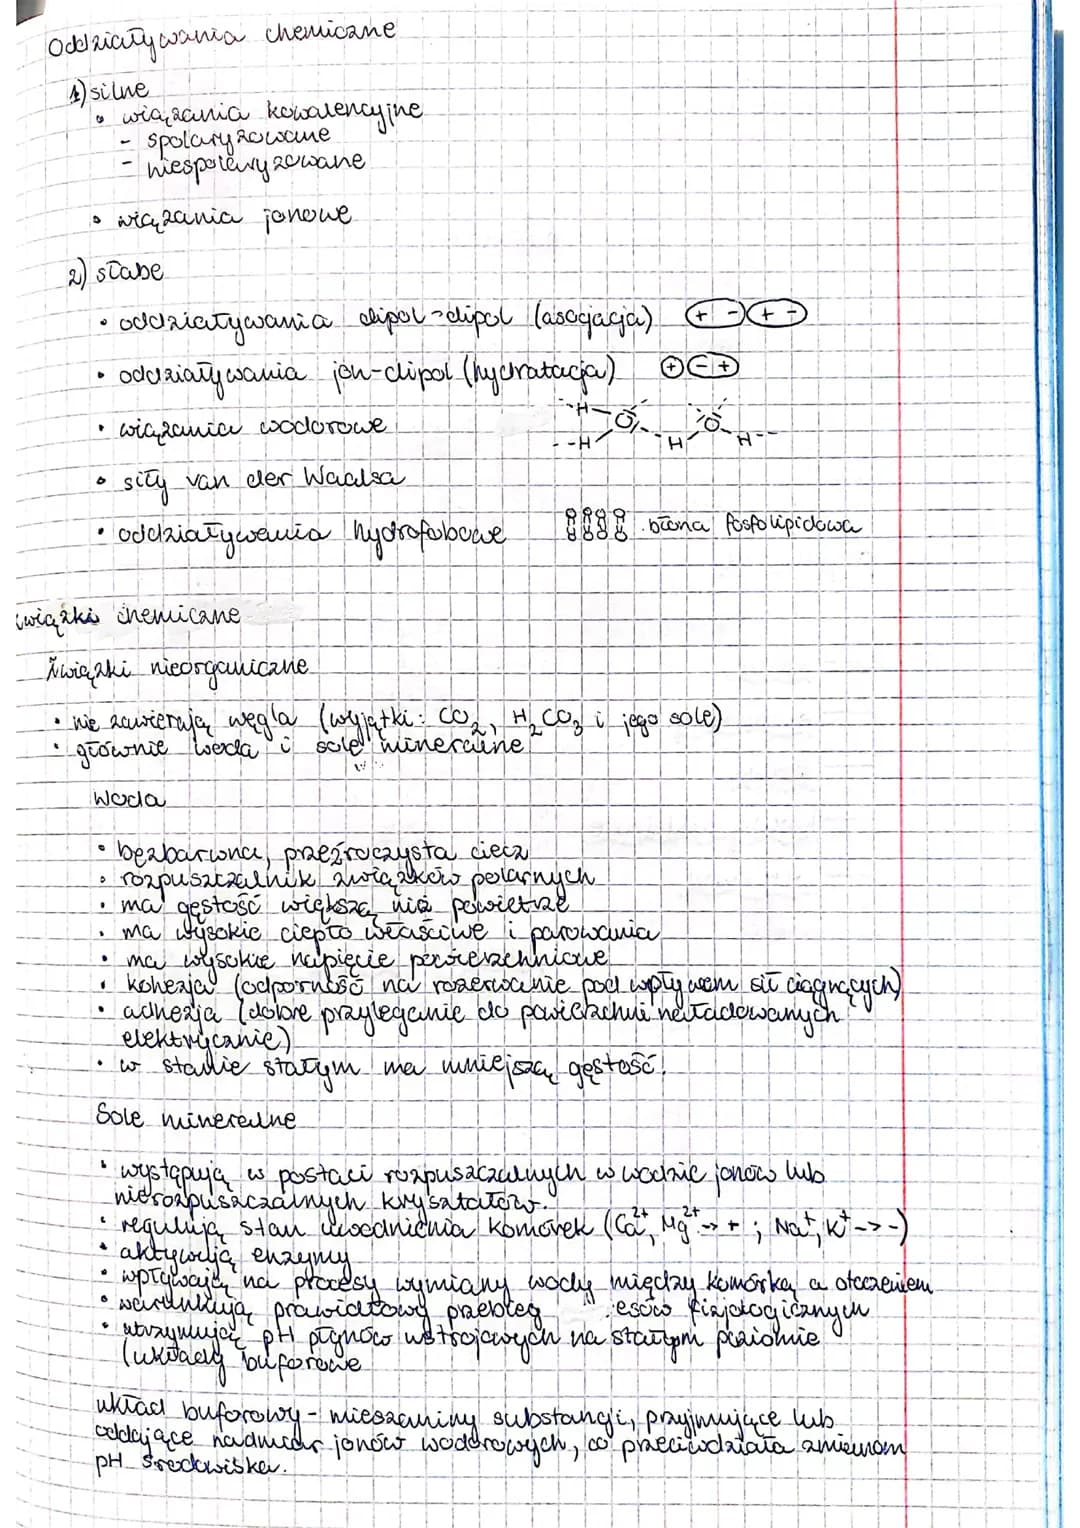 Oddziaływania chemiczne
1) silne
• wiązania kowalencyjne
- spolaryzowane
- niespolaryzowane
• wiązania jonowe
2) słabe
• oddziaływania dipol-dipol (asocjacja) + - + -
• oddziaływania jon-dipol (hydratacja) + - +
• wiązania wodorowe H O H H O H
• siły van der Waalsa
• oddziaływania hydrofobowe błona fosfolipidowa
związki chemiczne
Związki nieorganiczne
• nie zawierają węgla (wyjątki: CO₂, H₂CO₃ i jego sole)
• głównie woda i sole mineralne
Woda
• bezbarwna, przeźroczysta ciecz
• rozpuszczalnik związków polarnych
• ma gęstość większą niż powietrze
• ma wysokie ciepło właściwe i parowania
• ma wysokie napięcie powierzchniowe
• kohezja (odporność na rozerwanie pod wpływem sił ciągnących)
• adhezja (dobre przyleganie do powierzchni naładowanych
elektrycznie)
• w stanie stałym ma mniejszą gęstość.
Sole mineralne
• występują w postaci rozpuszczalnych w wodzie jonów lub
nierozpuszczalnych kryształów.
• regulują stan uwodnienia komórek (Ca²⁺, Mg²⁺ -> + ; Na⁺, K⁺ -> -)
• aktywują enzymy
• wpływają na procesy wymiany wody między komórką a otoczeniem
• warunkują prawidłowy przebieg esów fizjologicznych
• utrzymują pH płynów ustrojowych na stałym poziomie
(układy buforowe
układ buforowy - mieszaniny substancji, przyjmujące lub
oddające nadmiar jonów wodorowych, co przeciwdziała zmianom
pH środowiska.